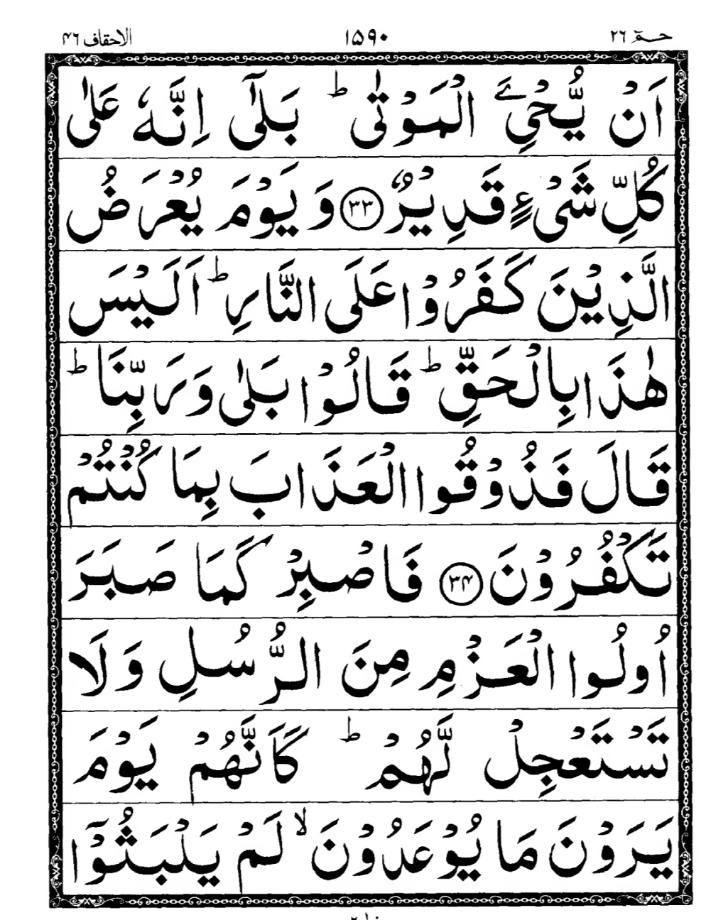 حٰمٓ ٢٦ ١٥٩٠ الاحقاف ٤٦
اَنْ يُّحْيِۦَ الْمَوْتٰى ؕ بَلٰٓى اِنَّهٗ عَلٰى
كُلِّ شَىْءٍ قَدِيْرٌ ﴿٣٣﴾ وَيَوْمَ يُعْرَضُ
الَّذِيْنَ كَفَرُوْا عَلَى النَّارِ ؕ اَلَيْسَ
هٰذَا بِالْحَقِّ ؕ قَالُوْا بَلٰى وَرَبِّنَا ؕ
قَالَ فَذُوْقُوا الْعَذَابَ بِمَا كُنْتُمْ
تَكْفُرُوْنَ ﴿٣٤﴾ فَاصْبِرْ كَمَا صَبَرَ
اُولُوا الْعَزْمِ مِنَ الرُّسُلِ وَلَا
تَسْتَعْجِلْ لَّهُمْ ؕ كَاَنَّهُمْ يَوْمَ
يَرَوْنَ مَا يُوْعَدُوْنَ ۙ لَمْ يَلْبَثُوْٓا